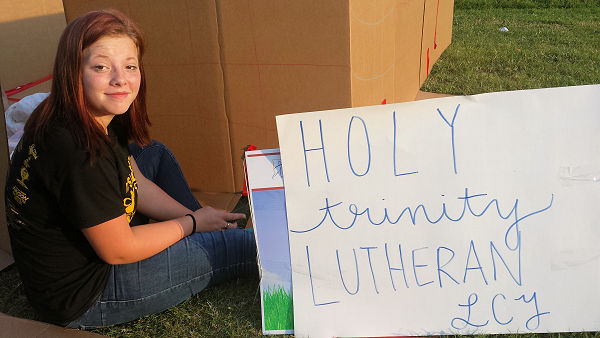 HOLY
trinity
LUTHERAN
LCY